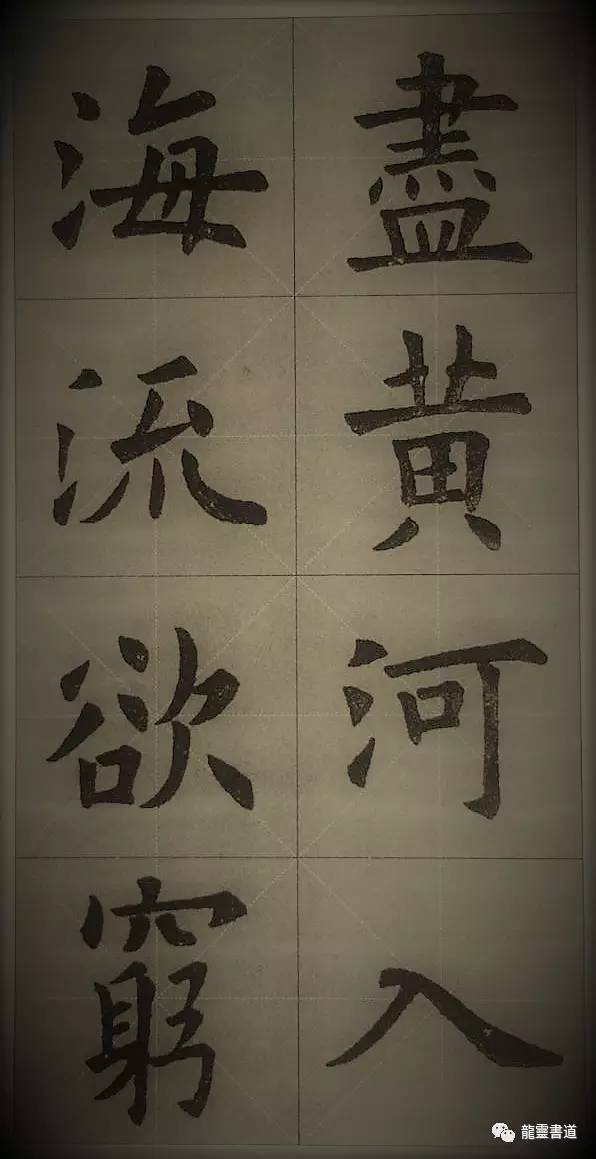 盡黄河入
海流欲窮
龍靈書道